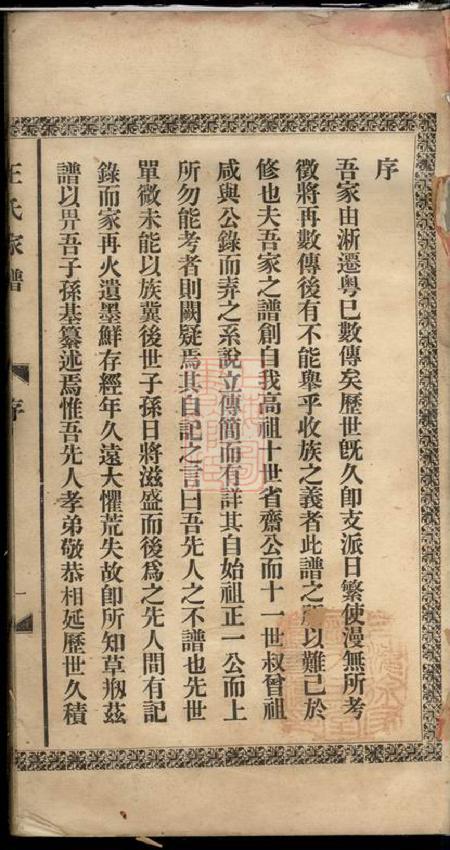 序
吾家由浙遷粵已數傳矣歷世旣久卽支派日繁使漫無所考
徵將再數傳後有不能舉乎收族之義者此譜之所以難已於
修也夫吾家之譜創自我高祖十世省齋公而十一世叔曾祖
咸與公錄而弆之系說立傳簡而有詳其自始祖正一公而上
所勿能考者則闕疑焉其自記之言曰吾先人之不譜也先世
單微未能以族冀後世子孫日將滋盛而後爲之先人間有記
錄而家再火遺墨鮮存經年久遠大懼荒失故卽所知草剏茲
譜以畀吾子孫基纂述焉惟吾先人孝弟敬恭相延歷世久積
王氏家譜
序
一